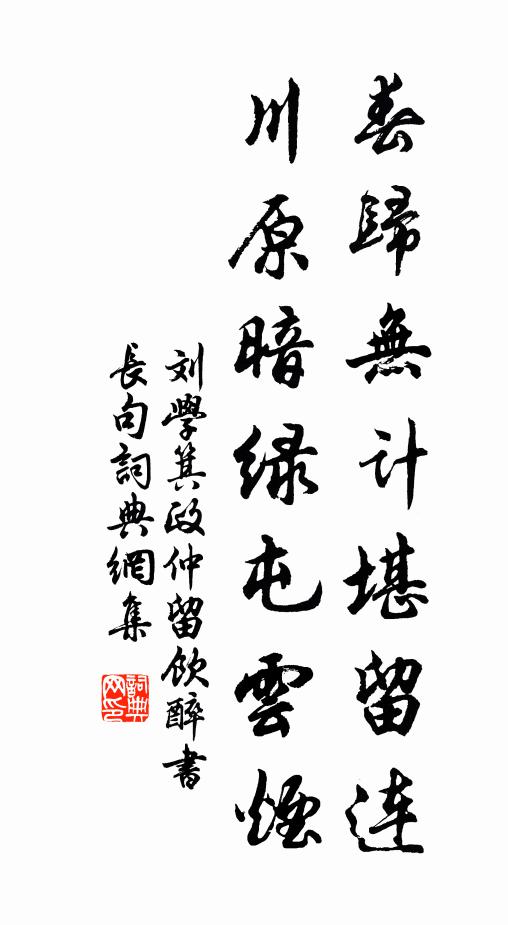 春歸無計堪留連
川原暗緑屯雲煙
刘學箕政仲留飲醉書
長句詞典網集
詞典网印